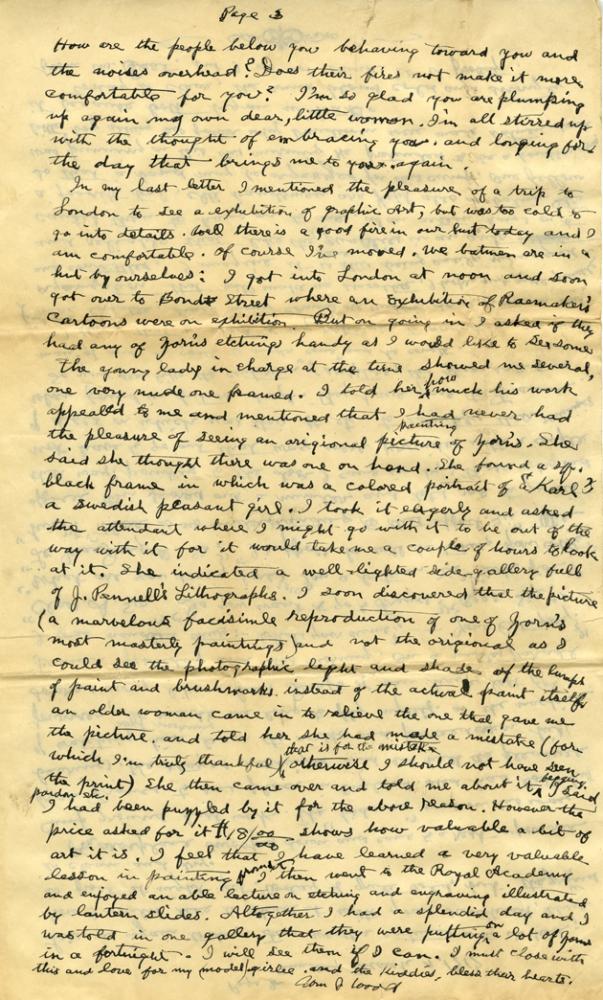 Page 3
How are the people below you behaving toward you and
the noises overhead? Does their fires not make it more
comfortable for you? I'm so glad you are plumping
up again my own dear, little woman. I'm all stirred up
with the thought of embracing you. and longing for
the day that brings me to you again.
In my last letter I mentioned the pleasure of a trip to
London to see a exhibition of graphic Art, but was too cold to
go into details. Well there is a good fire in our hut today and I
am comfortable. Of course I've moved. We batmen are in a
hut by ourselves: I got into London at noon and soon
got over to Bond Street where an Exhibition of Raemaker's
Cartoons were on exhibition But on going in I asked if they
had any of Zorn's etchings handy as I would like to see some
The young lady in charge at the time showed me several,
one very nude one framed. I told her how much his work
appealed to me and mentioned that I had never had
the pleasure of seeing an origional picture painting of Zorn's. She
said she thought there was one on hand. She found a
black frame in which was a colored portrait of a "Karl"
a Swedish peasant girl. I took it eagerly and asked
the attendant where I might go with it to be out of the
way with it for it would take me a couple of hours to look
at it. She indicated a well-lighted side gallery full
of J. Pennell's Lithographs. I soon discovered that the picture
(a marvelous facisimile reproduction of one of Zorn's
most masterly paintings) and not the origional as I
could see the photographic light and shade of the lumps
of paint and brushmarks instead of the actual paint itself
an older woman came in to relieve the one that gave me
the picture. and told her she had made a mistake (for
which I'm truly thankful) (that is for the mistake otherwise I should not have seen
the print) She then came over and told me about it begging pardon etc. I said
I had been puzzled by it for the above reason. However the
price asked for it $18/00 shows how valuable a bit of
art it is. I feel that I have learned a very valuable
lesson in painting from it I then went to the Royal Academy
and enjoyed an able lecture on etching and engraving illustrated
by lantern slides. Altogether I had a splendid day and I
was told in one gallery that they were putting on a lot of Zorns
in a fortnight. I will see them if I can. I must close with
this and love for my model girlie. and the kiddies, bless their hearts.
Tom J Wood